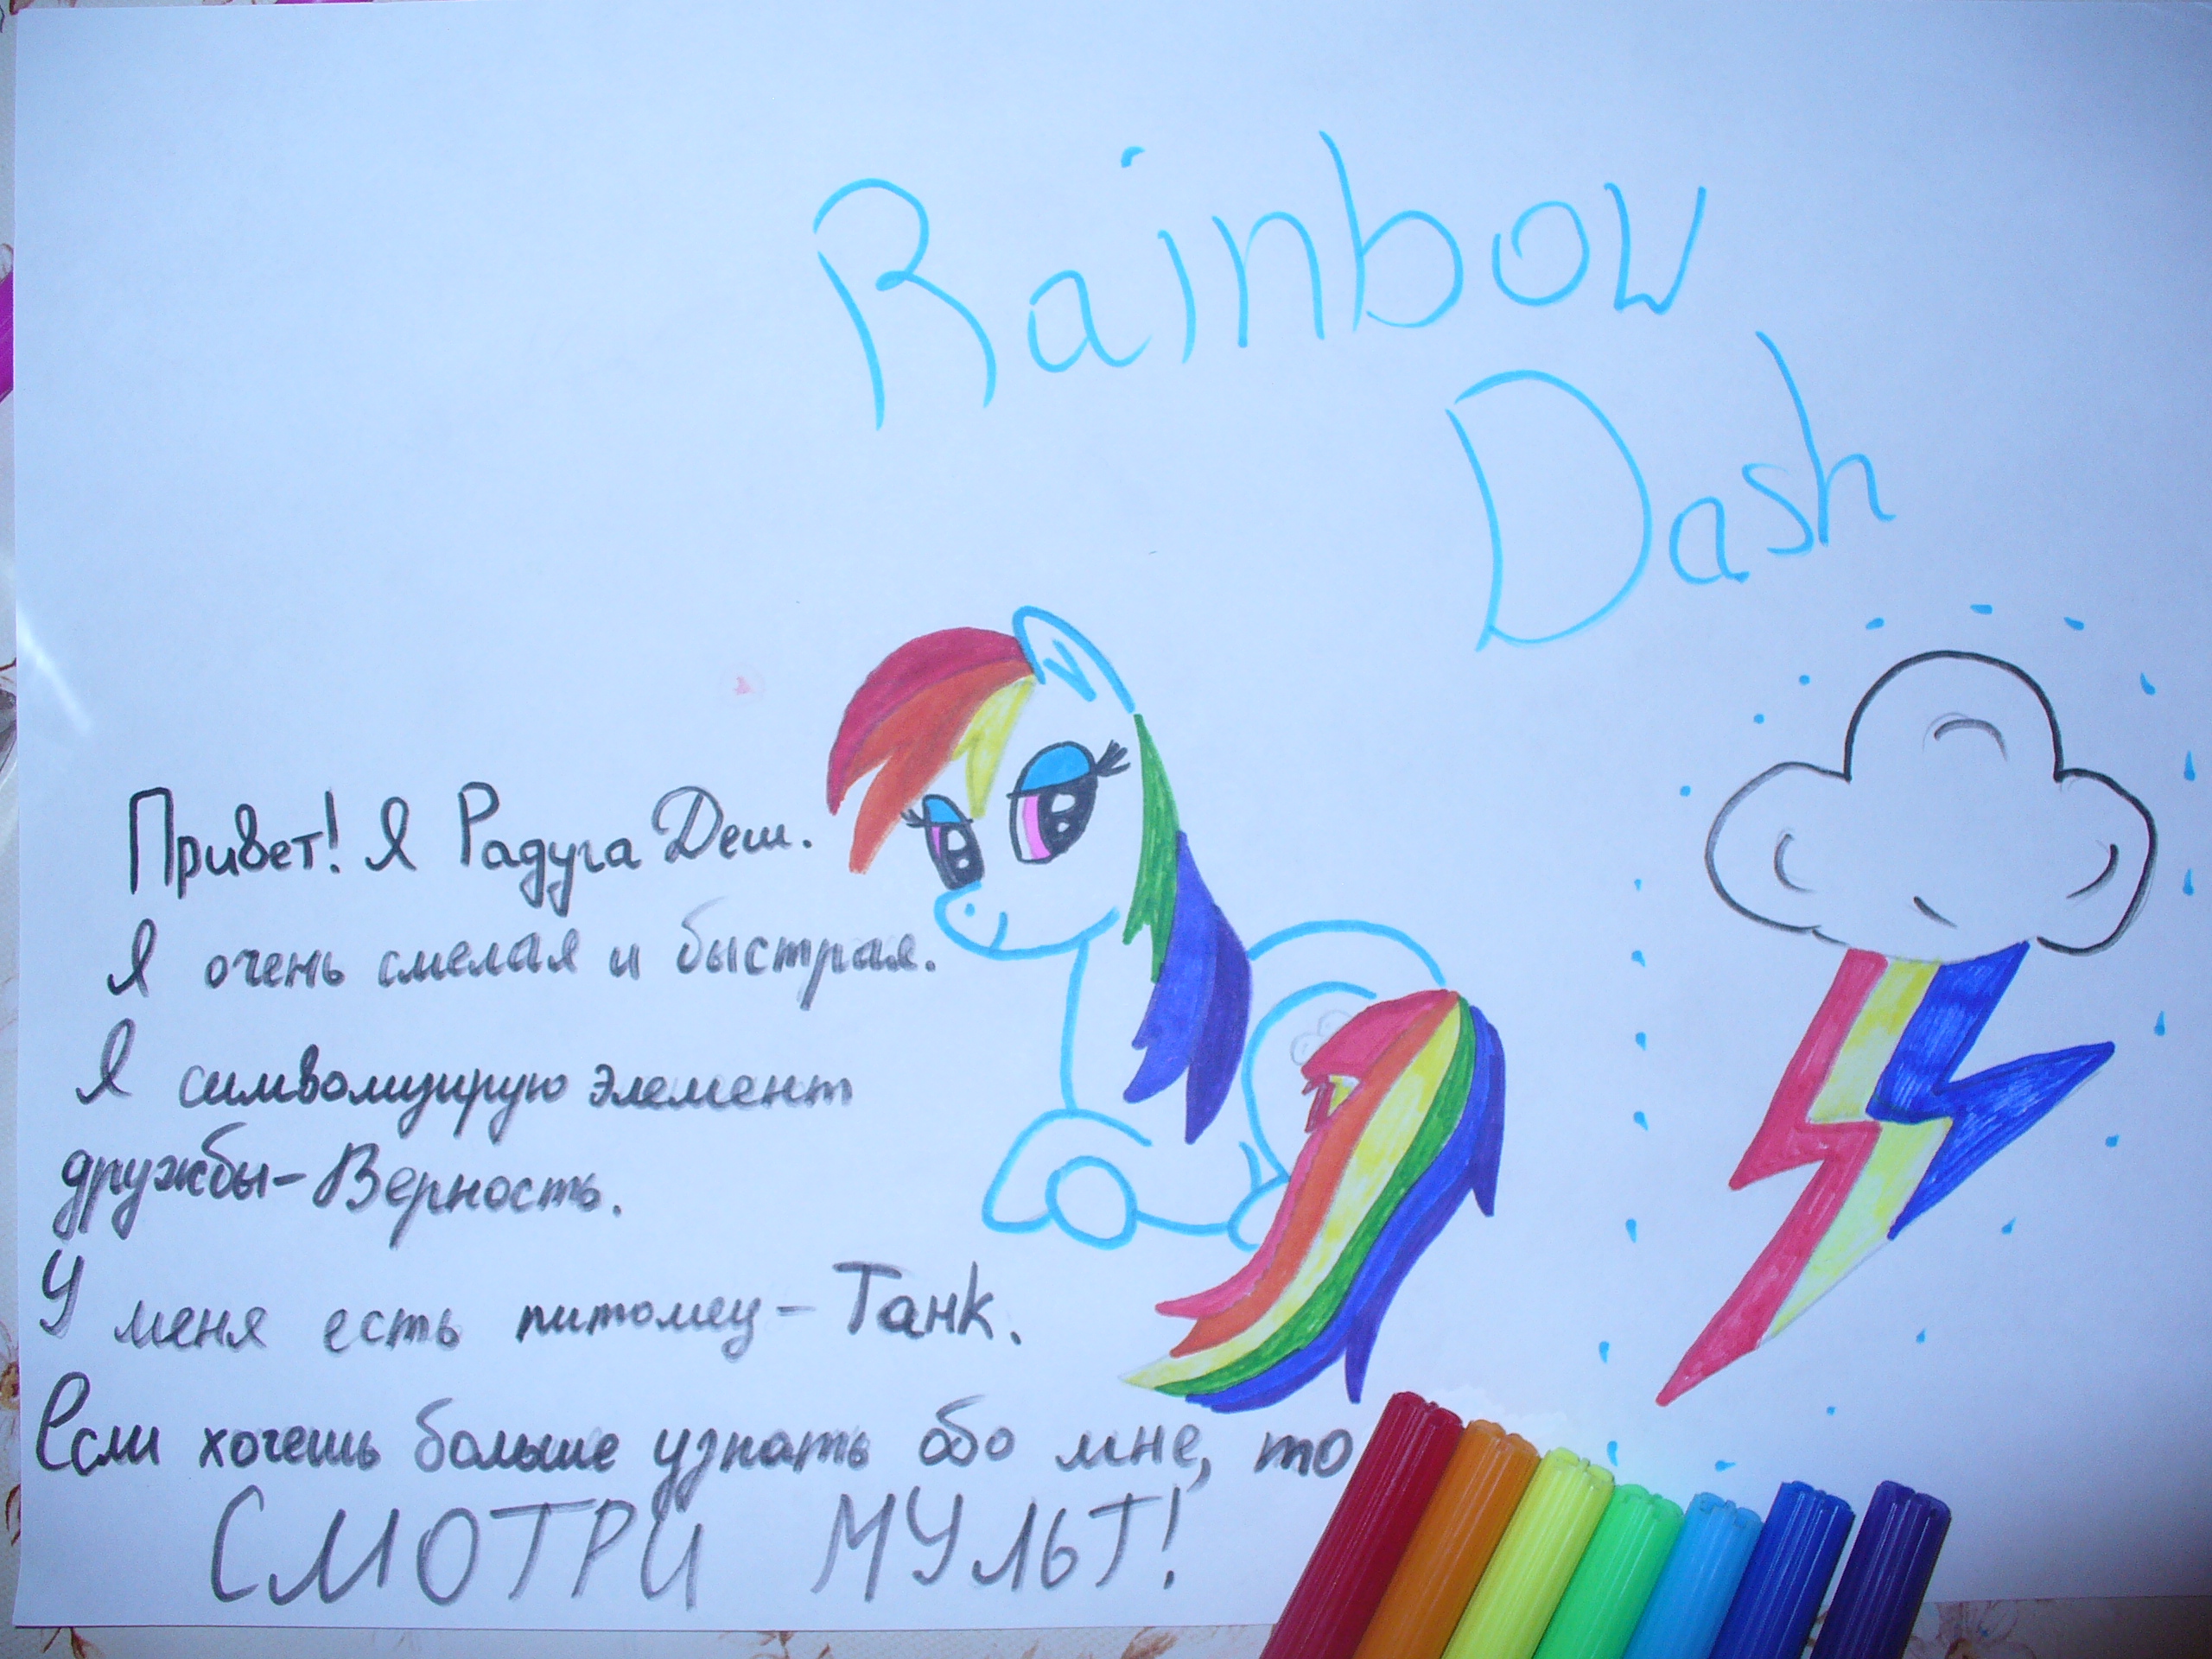 Rainbow
Dash
Привет! Я Радуга Деш.
Я очень смелая и быстрая.
Я символизирую элемент
дружбы-Верность.
У меня есть питомец-Танк.
Если хочешь больше узнать обо мне, то
СМОТРИ МУЛЬТ!